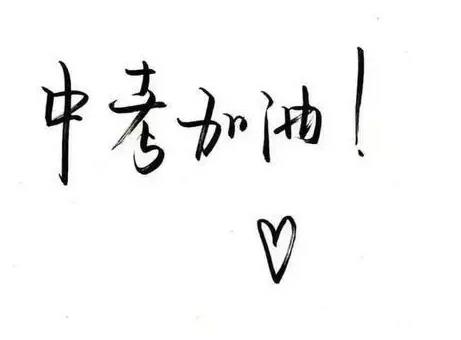 中考加油！